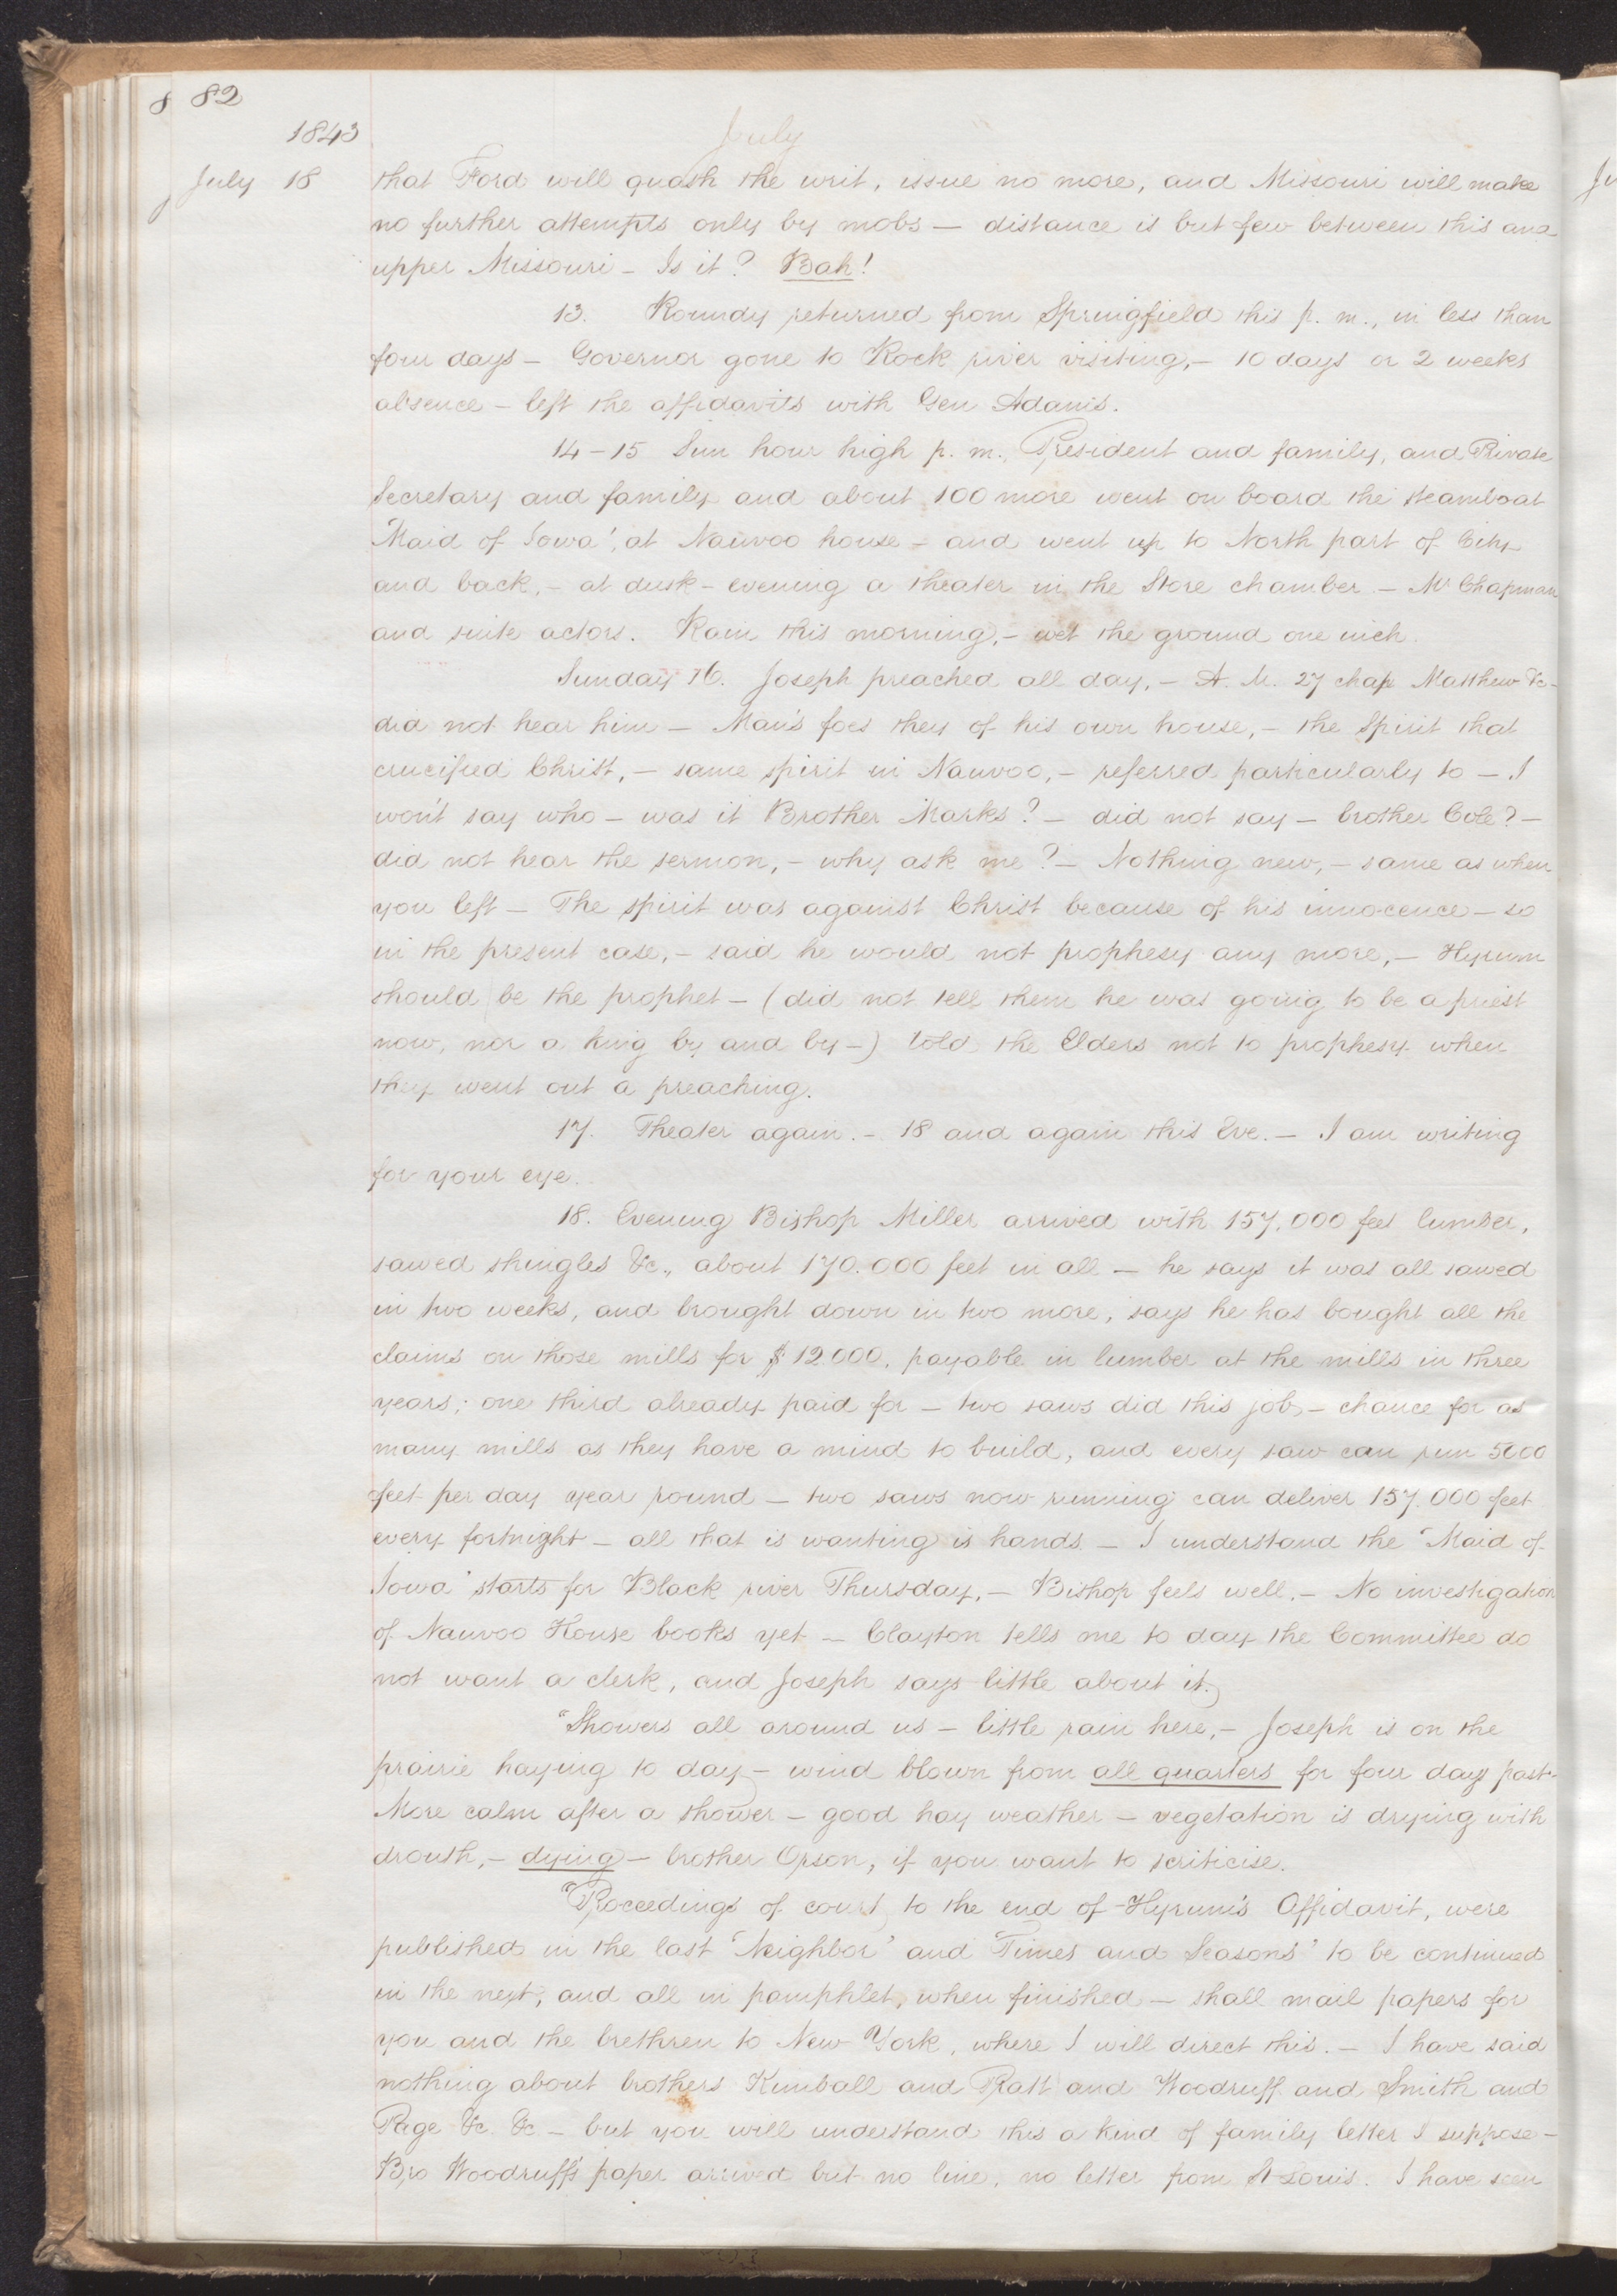 8 82
1843
July
July 18 that Ford will quash the writ, issue no more, and Missouri will make
no further attempts only by mobs — distance is but few between this and
upper Missouri — Is it? Bah!
13. Roundy returned from Springfield this p. m., in less than
four days — Governor gone to Rock river visiting, — 10 days or 2 weeks
absence — left the affidavits with Gen Adams.
14-15 Sun hour high p. m., President and family, and Private
Secretary and family and about 100 more went on board the steamboat
"Maid of Iowa", at Nauvoo house — and went up to North part of City
and back, — at dusk — evening a theater in the Store chamber — Mr Chapman
and suite actors. Rain this morning, — wet the ground one inch.
Sunday 16. Joseph preached all day, — A. M. 27 chap Matthew &c —
did not hear him — Man's foes they of his own house, — the Spirit that
crucified Christ, — same spirit in Nauvoo, — referred particularly to — I
won't say who — was it Brother Marks? — did not say — brother Cole? —
did not hear the sermon, — why ask me? — Nothing new, — same as when
you left — The spirit was against Christ because of his innocence — so
in the present case, — said he would not prophesy any more, — Hyrum
should be the prophet — (did not tell them he was going to be a priest
now, nor a king by and by —) told the Elders not to prophesy when
they went out a preaching.
17. Theater again. — 18 and again this Eve. — I am writing
for your eye.
18. Evening Bishop Miller arrived with 157,000 feet lumber,
sawed shingles &c., about 170.000 feet in all — he says it was all sawed
in two weeks, and brought down in two more, says he has bought all the
claims on those mills for $12000, payable in lumber at the mills in three
years; one third already paid for — two saws did this job, — chance for as
many mills as they have a mind to build, and every saw can run 5000
feet per day year round — two saws now running can deliver 157.000 feet
every fortnight — all that is wanting is hands. — I understand the "Maid of
Iowa" starts for Black river Thursday, — Bishop feels well. — No investigation
of Nauvoo House books yet — Clayton tells me to day the Committee do
not want a clerk, and Joseph says little about it.
"Showers all around us — little rain here, — Joseph is on the
prairie haying to day — wind blown from all quarters for four days past.
More calm after a shower — good hay weather — vegetation is drying with
drouth, — dying — brother Orson, if you want to scriticise.
"Proceedings of court, to the end of Hyrum's Affidavit, were
published in the last 'Neighbor' and 'Times and Seasons' to be continued
in the next, and all in pamphlet, when finished — shall mail papers for
you and the brethren to New York, where I will direct this. — I have said
nothing about brothers Kimball and Pratt and Woodruff and Smith and
Page &c. &c — but you will understand this a kind of family letter I suppose —
Bro Woodruff's paper arrived but no line, no letter from St Louis. I have seen
Ju